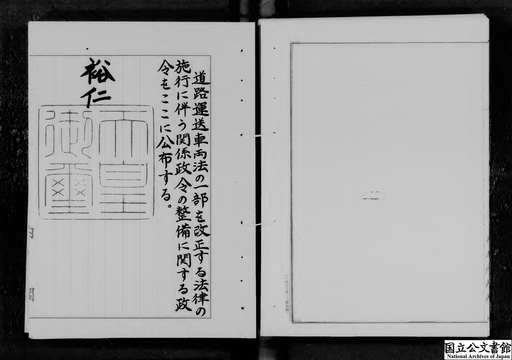 道路運送車両法の一部を改正する法律の
施行に伴う関係政令の整備に関する政
令をここに公布する。
裕仁
天皇
御璽
国立公文書館
National Archives of Japan